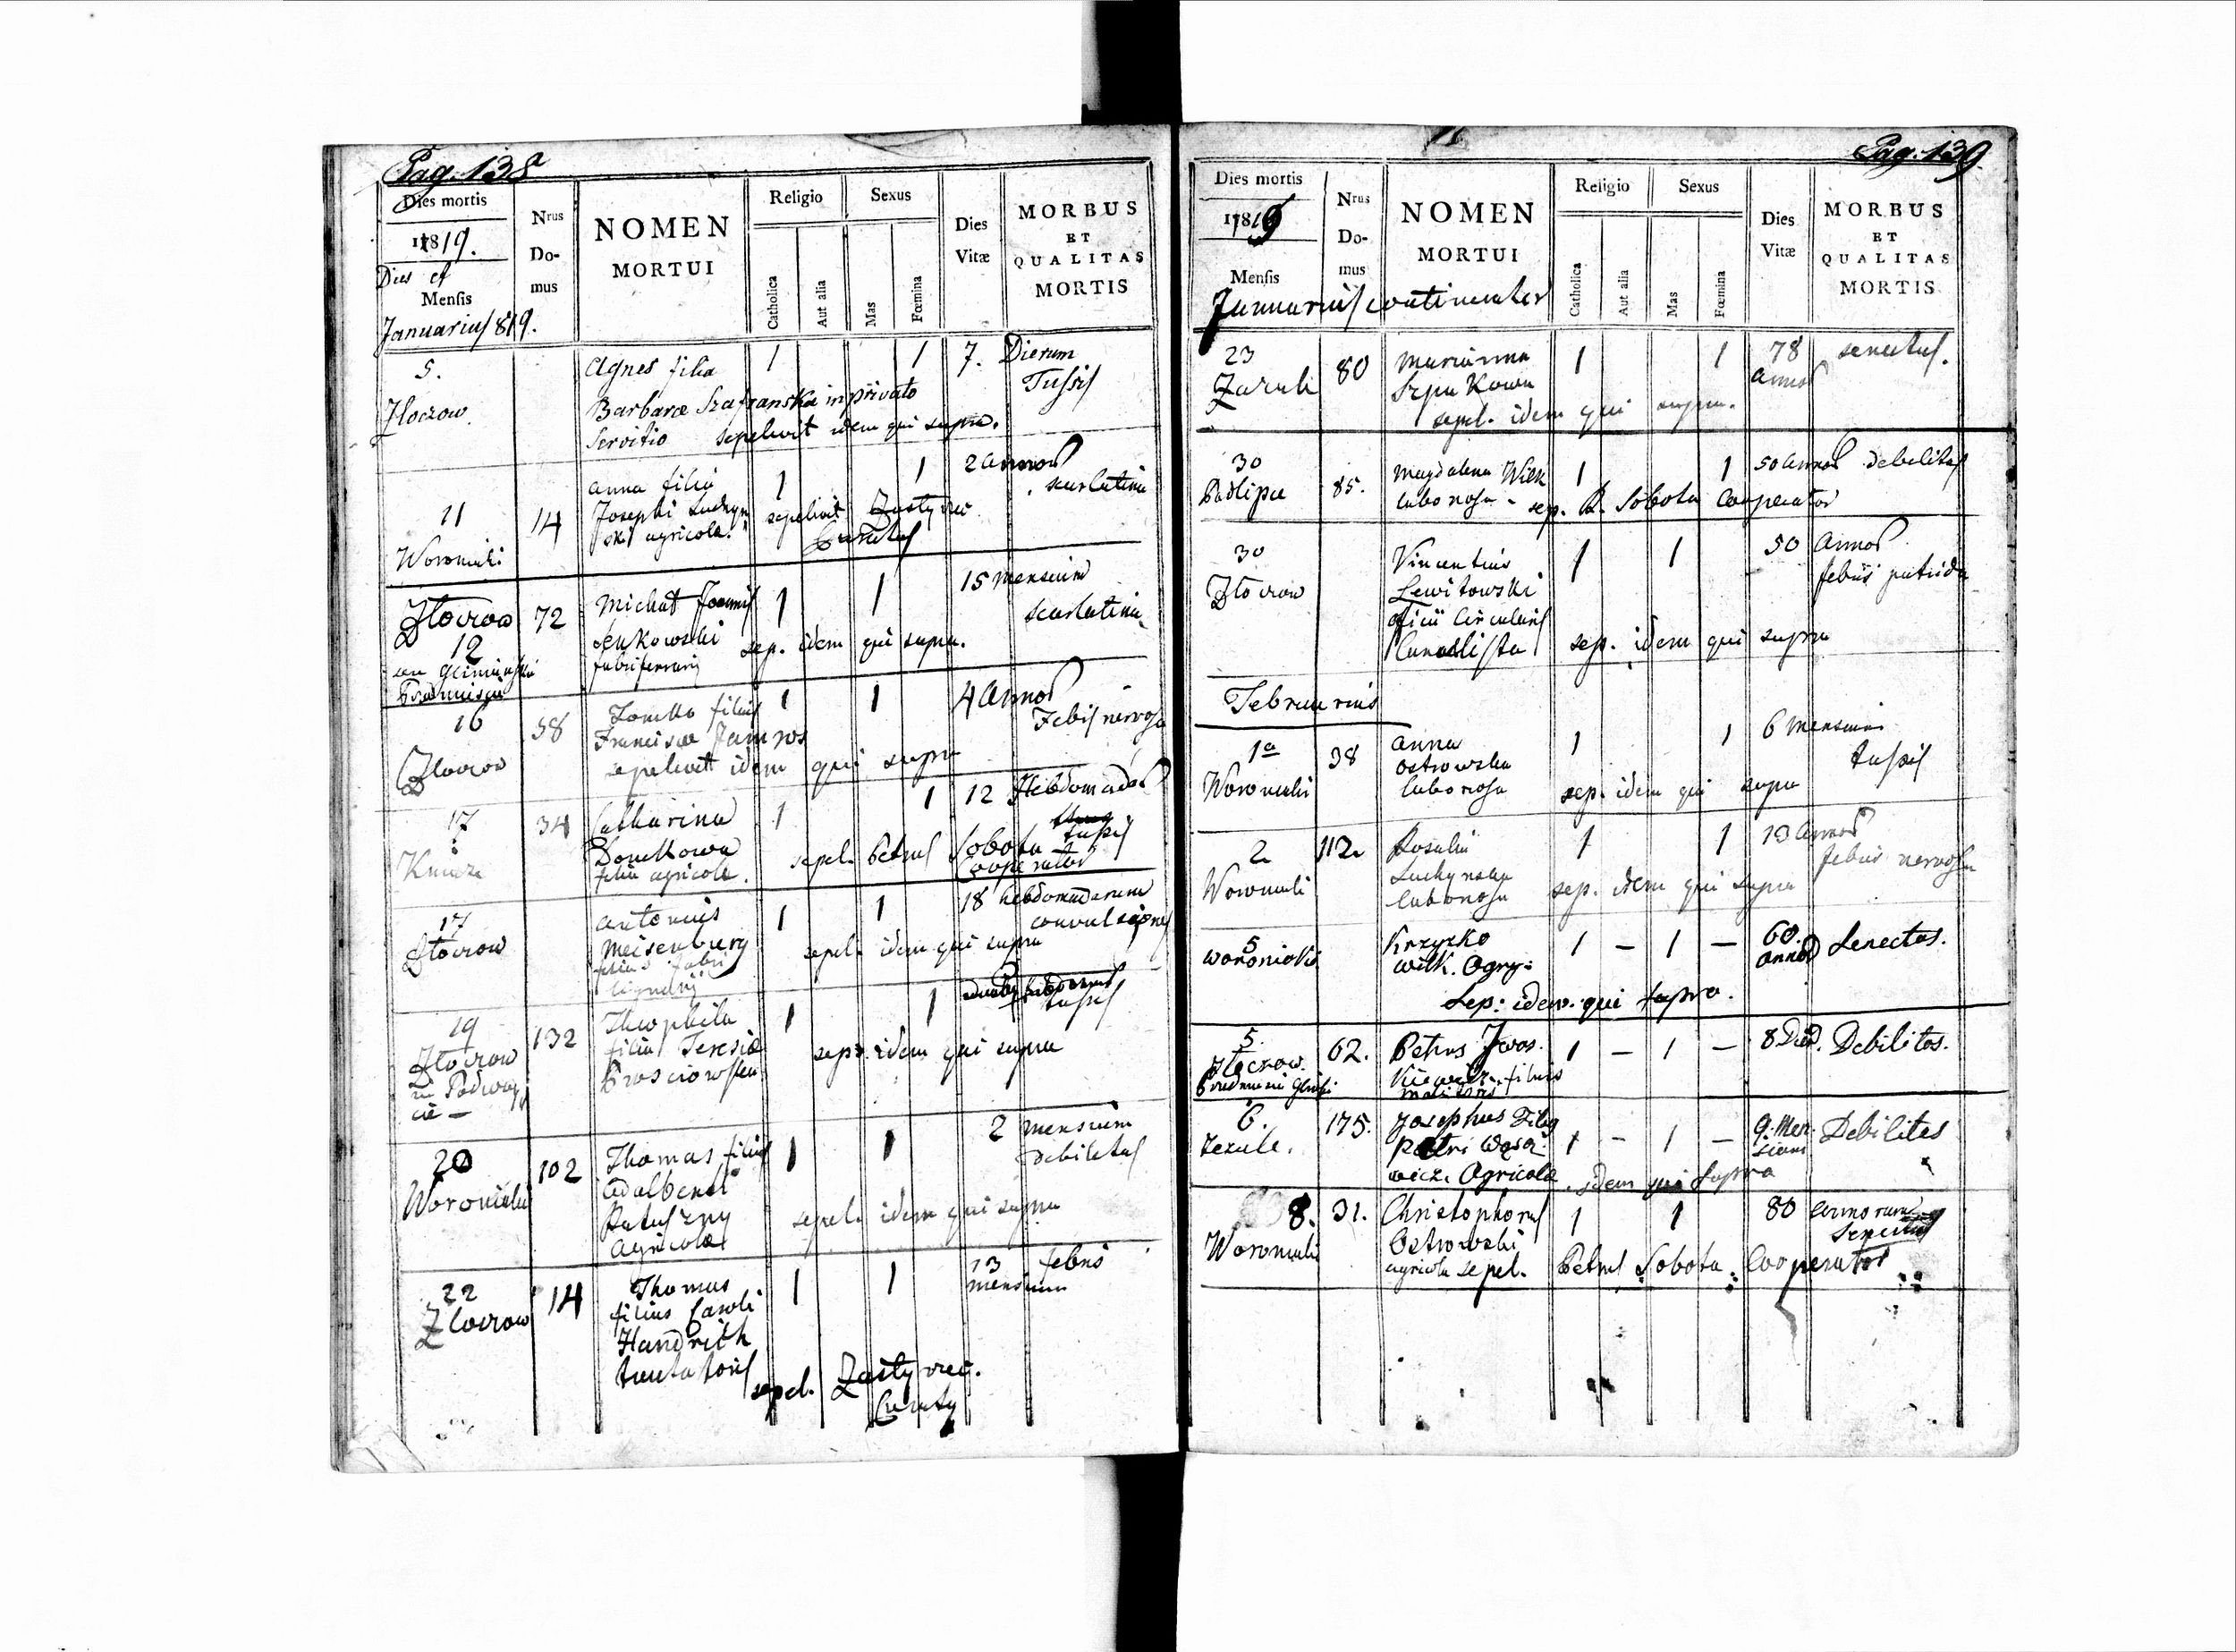 Pag. 138
Dies mortis
1819.
Dies et
Mensis
Januarius 819.
Nrus
Do-
mus
NOMEN
MORTUI
Religio
Catholica
Aut alia
Sexus
Mas
Fœmina
Dies
Vitæ
MORBUS
ET
QUALITAS
MORTIS
5. Agnes filia 1 1 7. Dierum
Złoczow. Barbaræ Szafranska in privato Tussis
Servitio sepelivit idem qui supra.
Anna filia 1 1 2 Annos
11 14 Josephi sepelivit scarlatina
Woroniaki ski agricola. Curatus
Złoczow 72 Michał Joannis 1 1 15 mensium
12 Senkowski sep. idem qui supra. scarlatina
fabri ferrarij
16 58 Tomko filius 1 1 4 Annos
Złoczow Franciscæ Febris nervosa
sepelivit idem qui supra
17 34 Catharina 1 1 12 Hebdomadas
tussis
filia agricolæ. sepel. Petrus Sobota Cooperator
17 Antonius 1 1 18 hebdomadarum
Złoczow Meisenburg sepel. idem qui supra convulsiones
filius fabri
lignarij
19 132 Theophila 1 1 tussis
Złoczow filia Teresiæ sep. idem qui supra
20 102 Thomas filius 1 1 2 mensium
Woroniaki Adalberti debilitas
sepel. idem qui supra
Agricolæ
22 14 Thomas 1 1 13 febris
Złoczow filius Caroli mensium
Handrich
sepel.
Pag. 139
Dies mortis
1819
Mensis
Januarius continuatur
Nrus
Do-
mus
NOMEN
MORTUI
Religio
Catholica
Aut alia
Sexus
Mas
Fœmina
Dies
Vitæ
MORBUS
ET
QUALITAS
MORTIS
23 80 Marianna 1 1 78 senectus.
Zazule Szpakowa annos
sepel. idem qui supra.
30 85. Magdalena Wilk 1 1 50 annos debilitas
Podlipce laboriosa - sep. P. Sobota Cooperator
30 Vincentius 1 1 50 Annos
Złoczow Lewitowski febris putrida
Cancellista sep. idem qui supra
Februarius
1a 38 Anna 1 1 6 mensium
Woroniaki Ostrowska tussis
laboriosa sep. idem qui supra
2 112. Rosalia 1 1 13 annos
Woroniaki febris nervosa
laboriosa sep. idem qui supra
5 Krzyżko 1 - 1 - 60. Senectus.
Woroniaki Wilk. Agry: annos
Sep: idem qui supra.
5. 62. Petrus Iwas- 1 - 1 - 8 Die. Debilitas.
Złoczow. kiewicz. filius
6. 175. Josephus Filius 1 - 1 - 9. Men- Debilitas
Zazule. Petri sium
wicz. Agricolæ. idem qui supra
8. 31. Christophorus 1 1 80 annorum
Woroniaki Ostrowski Senectus
agricola sepel. Petrus Sobota Cooperator